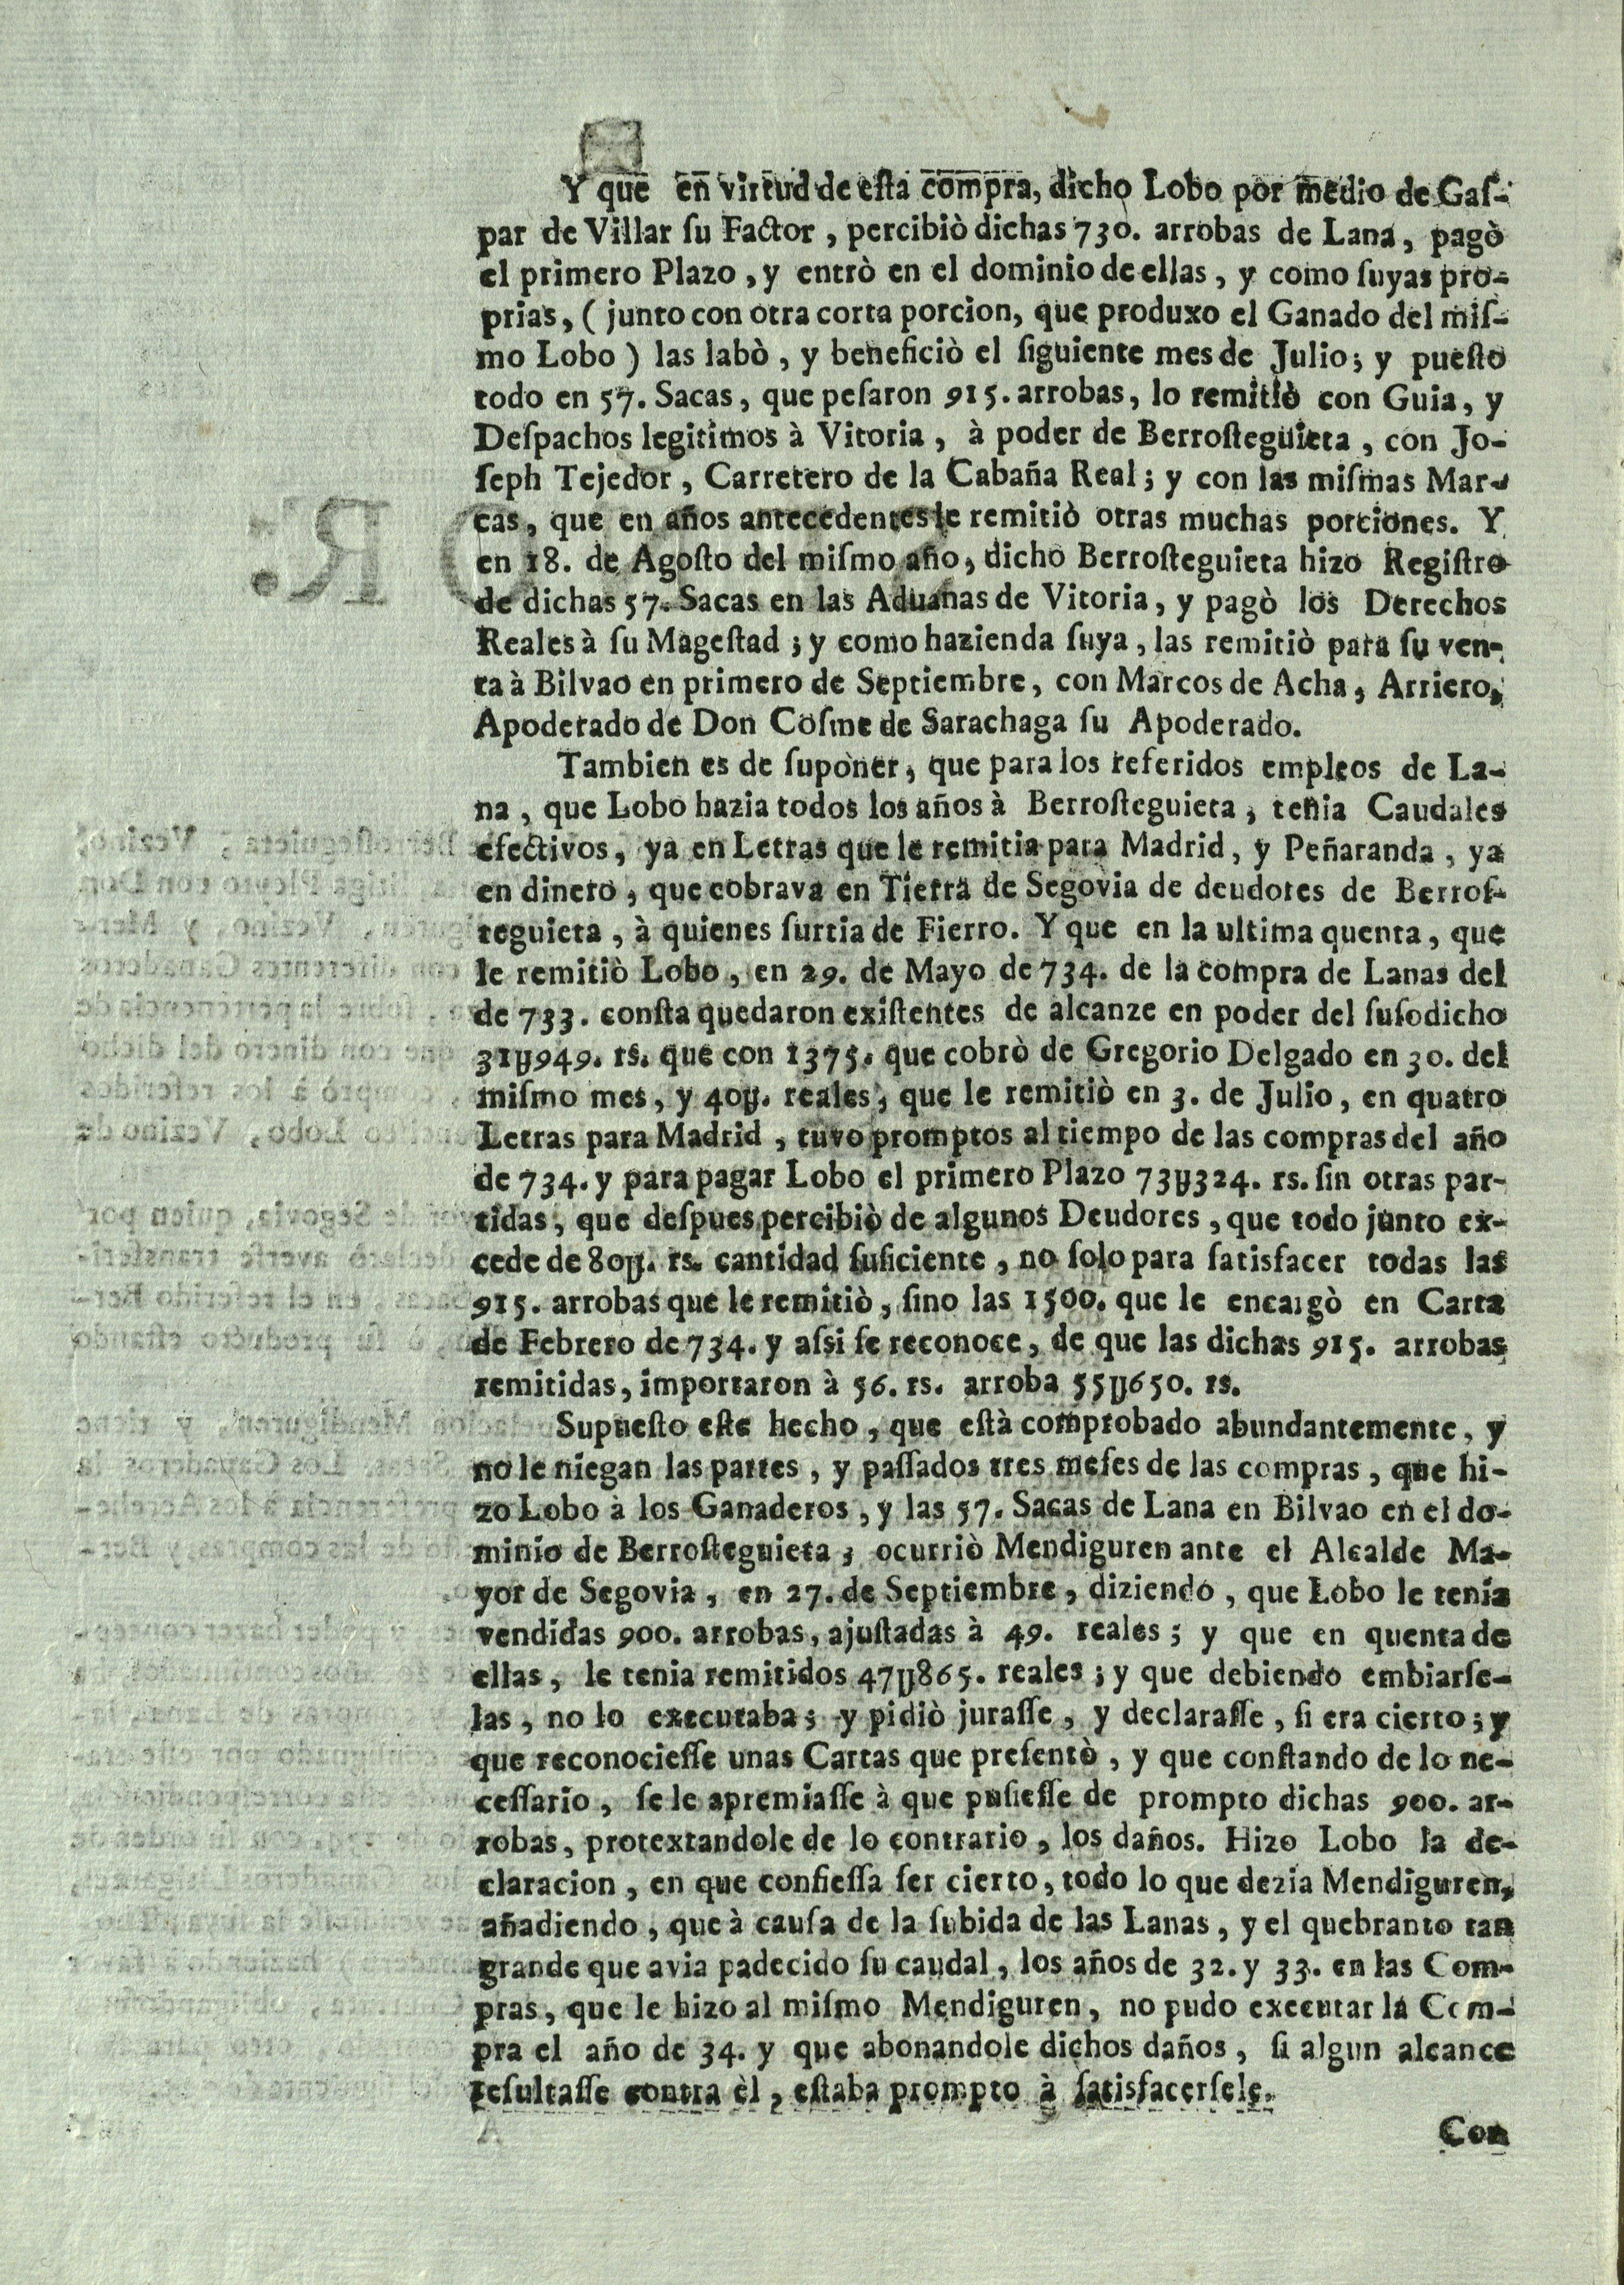 Y que en virtud de esta compra, dicho Lobo por medio de Gaſ-
par de Villar ſu Factor, percibiò dichas 730. arrobas de Lana, pagò
el primero Plazo, y entrò en el dominio de ellas, y como ſuyas pro-
prias, (junto con otra corta porcion, que produxo el Ganado del miſ-
mo Lobo) las labò, y beneficiò el ſiguiente mes de Julio; y pueſto
todo en 57. Sacas, que peſaron 915. arrobas, lo remitiò con Guia, y
Deſpachos legitimos à Vitoria, à poder de Berroſteguieta, con Jo-
ſeph Tejedor, Carretero de la Cabaña Real; y con las miſmas Mar-
cas, que en años antecedentes le remitiò otras muchas porciones. Y
en 18. de Agoſto del miſmo año, dicho Berroſteguieta hizo Regiſtro
de dichas 57. Sacas en las Aduanas de Vitoria, y pagò los Derechos
Reales à ſu Mageſtad; y como hazienda ſuya, las remitiò para ſu ven-
ta à Bilvao en primero de Septiembre, con Marcos de Acha, Arriero,
Apoderado de Don Coſme de Sarachaga ſu Apoderado.
Tambien es de ſuponer, que para los referidos empleos de La-
na, que Lobo hazia todos los años à Berroſteguieta, tenia Caudales
efectivos, ya en Letras que le remitia para Madrid, y Peñaranda, ya
en dinero, que cobrava en Tierra de Segovia de deudores de Berroſ-
teguieta, à quienes ſurtia de Fierro. Y que en la ultima quenta, que
le remitiò Lobo, en 29. de Mayo de 734. de la compra de Lanas del
de 733. conſta quedaron exiſtentes de alcanze en poder del ſuſodicho
31ɥ949. rs. que con 1375. que cobrò de Gregorio Delgado en 30. del
miſmo mes, y 40ɥ. reales, que le remitiò en 3. de Julio, en quatro
Letras para Madrid, tuvo promptos al tiempo de las compras del año
de 734. y para pagar Lobo el primero Plazo 73ɥ324. rs. ſin otras par-
tidas, que deſpues percibiò de algunos Deudores, que todo junto ex-
cede de 80ɥ. rs. cantidad ſuficiente, no ſolo para ſatisfacer todas las
915. arrobas que le remitiò, ſino las 1500. que le encargò en Carta
de Febrero de 734. y aſsi ſe reconoce, de que las dichas 915. arrobas
remitidas, importaron à 56. rs. arroba 55ɥ650. rs.
Supueſto eſte hecho, que eſtà comprobado abundantemente, y
no le niegan las partes, y paſſados tres meſes de las compras, que hi-
zo Lobo à los Ganaderos, y las 57. Sacas de Lana en Bilvao en el do-
minio de Berroſteguieta; ocurriò Mendiguren ante el Alcalde Ma-
yor de Segovia, en 27. de Septiembre, diziendo, que Lobo le tenia
vendidas 900. arrobas, ajuſtadas à 49. reales; y que en quenta de
ellas, le tenia remitidos 47ɥ865. reales; y que debiendo embiarſe-
las, no lo executaba; y pidiò juraſſe, y declaraſſe, ſi era cierto; y
que reconocieſſe unas Cartas que preſentò, y que conſtando de lo ne-
ceſſario, ſe le apremiaſſe à que puſieſſe de prompto dichas 900. ar-
robas, protextandole de lo contrario, los daños. Hizo Lobo la de-
claracion, en que confieſſa ſer cierto, todo lo que dezia Mendiguren,
añadiendo, que à cauſa de la ſubida de las Lanas, y el quebranto tan
grande que avia padecido ſu caudal, los años de 32. y 33. en las Com-
pras, que le hizo al miſmo Mendiguren, no pudo executar la Com-
pra el año de 34. y que abonandole dichos daños, ſi algun alcance
reſultaſſe contra èl, eſtaba prompto à ſatisfacerſele.
Con